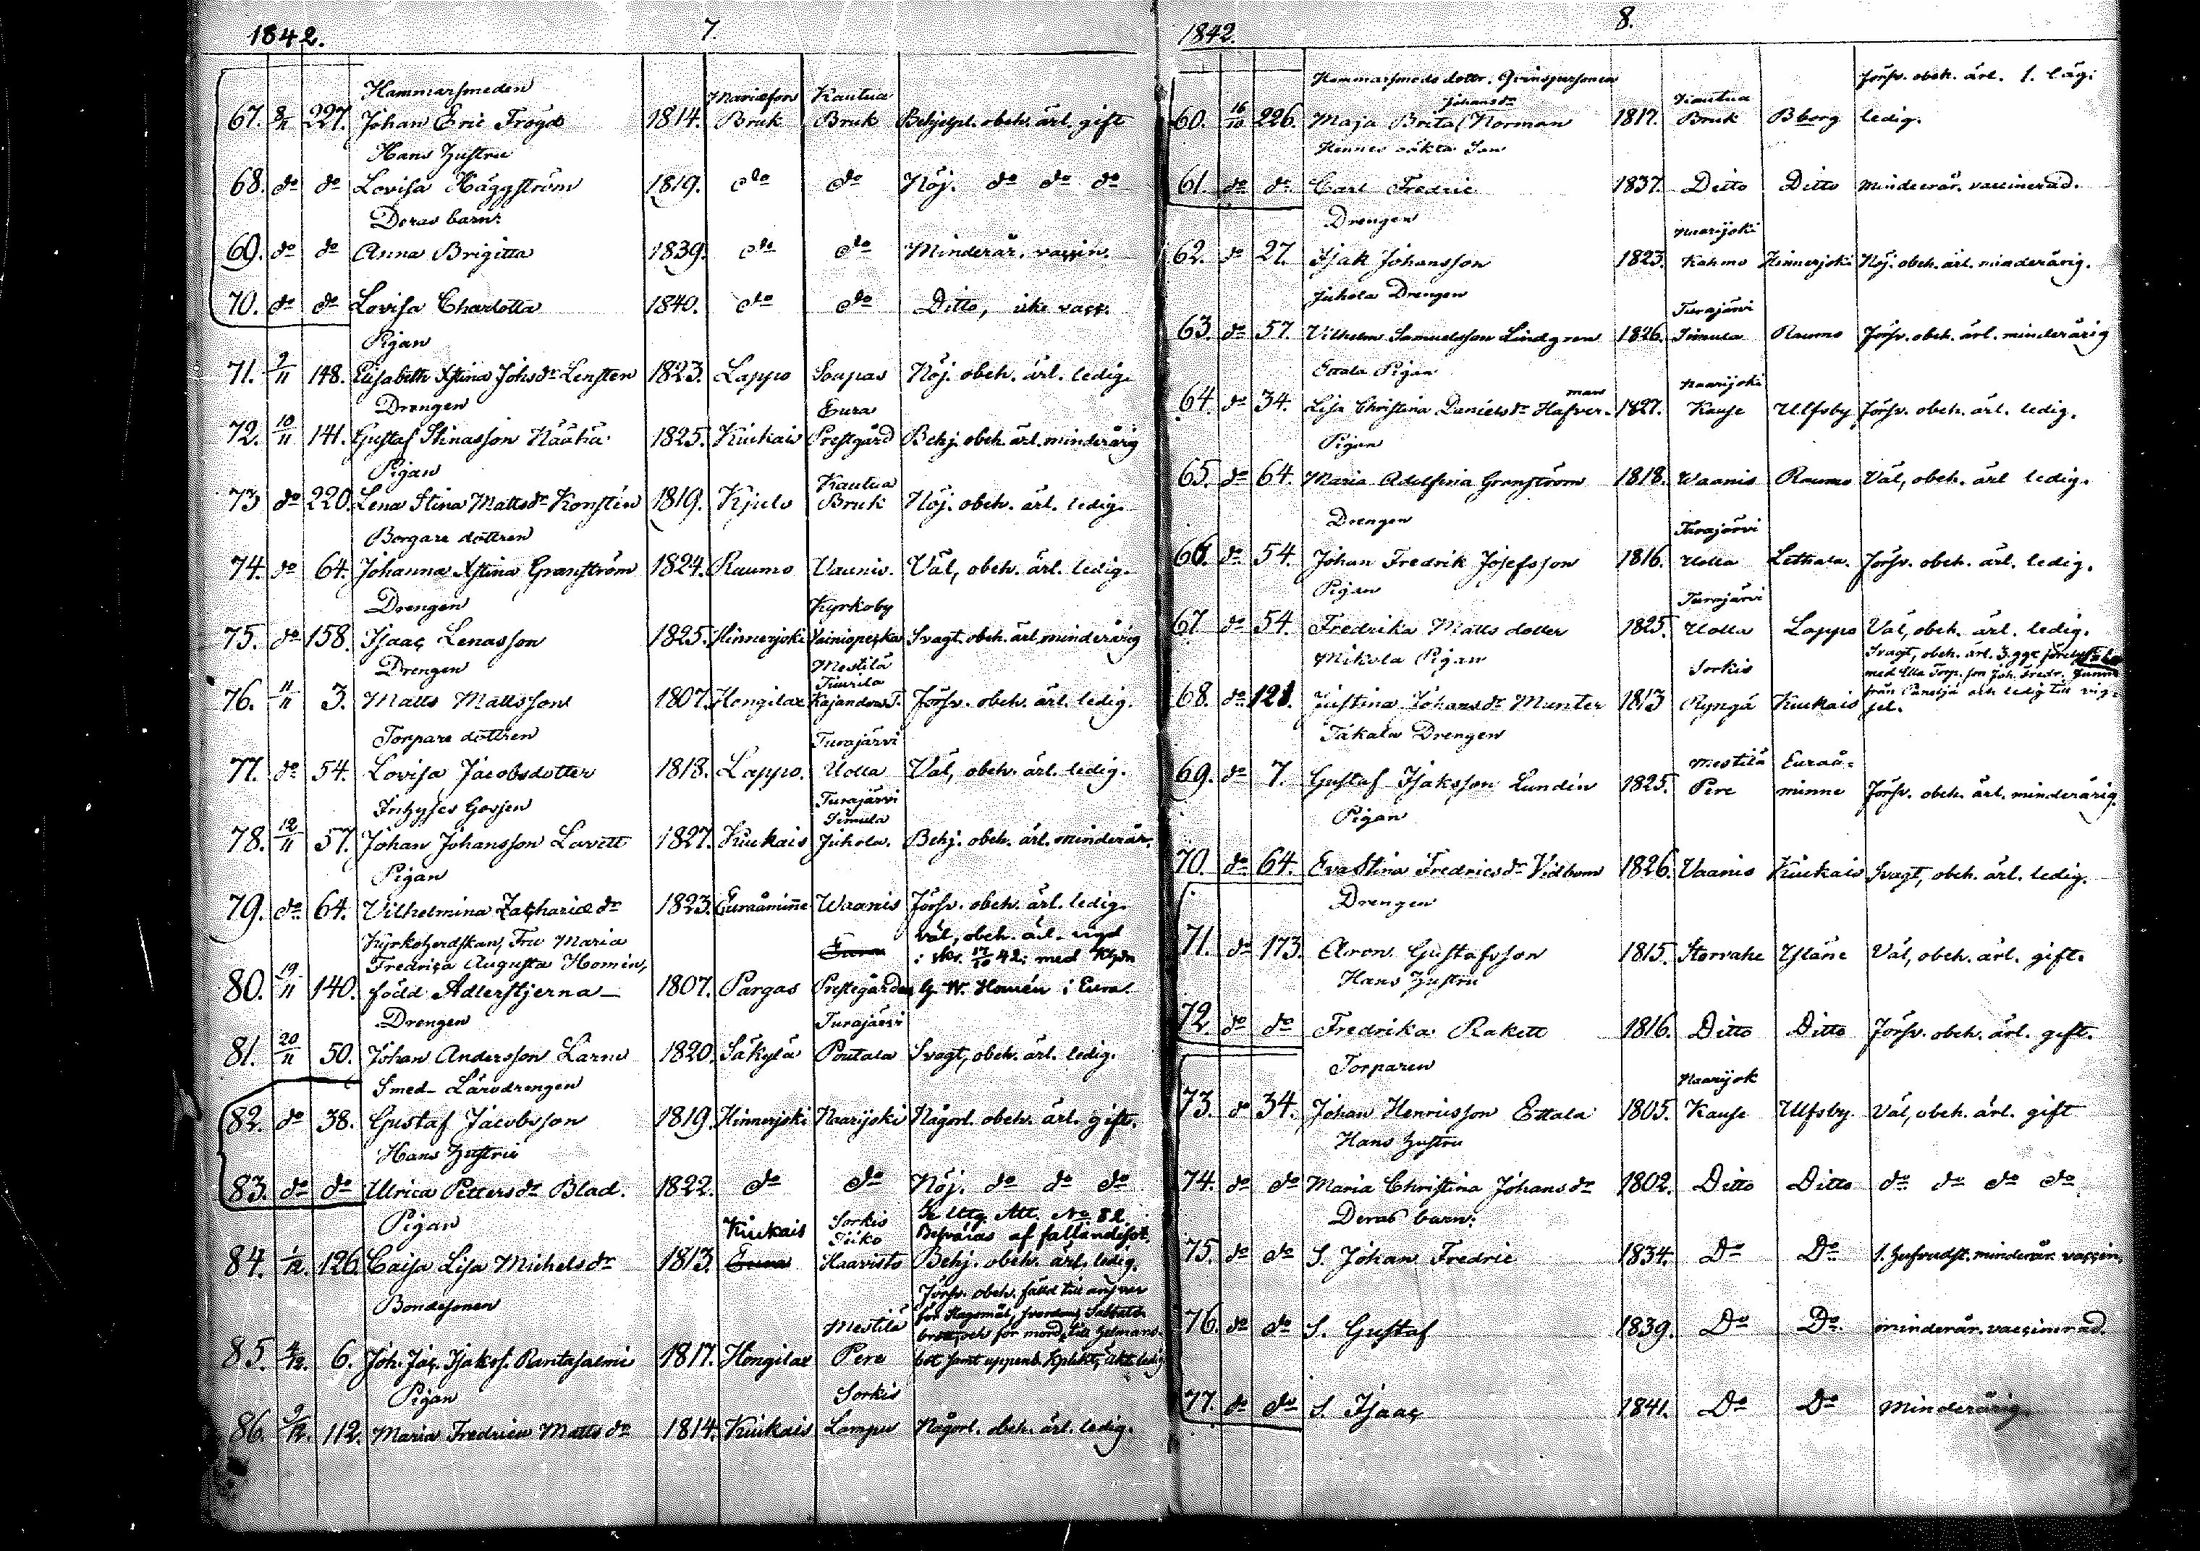 1842. 7.
Hammarsmeden Mariæfors Kautua
67. 8/11 227. Johan Eric Frögd 1814. Bruk Bruk Behjelpl. obeh. ärl. gift
Hans hustru
68. do do Lovisa Häggström 1819. do do Nöj. do do do
Deras barn:
69. do do Anna Brigitta 1839. do do Minderår. vaccin.
70. do do Lovisa Charlotta 1840. do do Ditto, icke vacc.
Pigan
71. 9/11 148. Elisabeth Xstina Johs dr Lensten 1823. Lappo Soupas Nöj. obeh. ärl. ledig.
Drengen Eura
72. 10/11 141. Gustaf Stinasson 1825. Kiukais Prestgård Behj. obeh. ärl. minderårig
Pigan Kautua
73 do 220. Lena Stina Matts dr Konstén 1819. Kjulo Bruk Nöj. obeh. ärl. ledig.
Borgare dottren
74. do 64. Johanna Xstina Granström 1824. Raumo Vaanis. Väl, obeh. ärl. ledig.
Drengen Kyrkoby
75. do 158. Isaac Lenasson 1825. Hinnerjoki Svagt. obeh. ärl. minderårig
Drengen Mestilä
76. 11/11 3. Matts Mattsson 1807. Hongilax Försv. obeh. ärl. ledig.
Torpare dottren Turajärvi
77. do 54. Lovisa Jacobsdotter 1818. Lappo. Uolla Väl, obeh. ärl. ledig.
Inhyses Gossen Turajärvi
Simula
78. 12/11 57. Johan Johansson Lavett 1827. Kiukais Juhola. Behj. obeh. ärl. minderår.
Pigan
79. do 64. Vilhelmina Zachariæ dr 1823. Euraåminne Waanis Försv. obeh. ärl. ledig.
Kyrkoherdskan, Fru Maria Väl, obeh. ärl. vigd
Fredrica Augusta Homén, Eura
80. 19/11 140. född Adlerstjerna 1807. Pargas Prestegården G. W. Homén i Eura.
Drengen Turajärvi
81. 20/11 50. Johan Andersson Larne 1820. Säkylä Poutala Svagt, obeh. ärl. ledig.
Smed- Lärodrengen
82. do 38. Gustaf Jacobsson 1819. Hinnerjoki Naarijoki Någorl. obeh. ärl. gift.
Hans hustru
83. do do Ulrica Petters dr Blad. 1822. do do Nöj. do do do
Pigan Kiukais Sorkis
84. 1/12. 126. Caisa Lisa Michels dr 1813. Eura Haavisto Behj. obeh. ärl. ledig.
Bondesonen Mestilä Försv. obeh.
85. 4/12. 6. Joh. Jac. Isakss. Rantasalmi 1817. Hongilax Pere
Pigan Sorkis
86. 9/12. 112. Maria Fredrica Matts dr 1814. Kiukais Lampu Någorl. obeh. ärl. ledig.
1842. 8.
Hammarsmeds dotter, Försv. obeh. ärl.
Johans dr Kautua
60. 16/10 226. Maja Brita Norman 1817. Bruk Bborg ledig.
Hennes oäkta Son
61. do do Carl Fredric 1837. Ditto Ditto minderår. vaccinerad.
Drengen Naarijoki
62. do 27. Isak Johansson 1823. Kahmo Hinnerjoki Nöj. obeh. ärl. minderårig.
Juhola Drengen Turajärvi
63. do 57. Vilhelm Samuelsson Lindgren 1826. Simula Raumo Försv. obeh. ärl. minderårig
Ettala Pigan Naarijoki
man
64. do 34. Lisa Christina Daniels dr Hafver- 1827. Kause Ulfsby Försv. obeh. ärl. ledig.
Pigan
65. do 64. Maria Adolfina Granström 1818. Waanis Raumo Väl, obeh. ärl ledig.
Drengen Turajärvi
66. do 54. Johan Fredrik Josefsson 1816. Uolla Lethala. Försv. obeh. ärl. ledig.
Pigan Turajärvi
67 do 54. Fredrika Matts dotter 1825. Uolla Lappo Väl, obeh. ärl. ledig.
Mikola Pigan Sorkis Svagt, obeh. ärl. 3 ggr
68. do 121. Justina Johans dr Munter 1813 Ryngä Kiukais
Takala Drengen
Mestilä Euraå-
69. do 7. Gustaf Isaksson Lundén 1825. Pere minne Försv. obeh. ärl. minderårig
Pigan
70. do 64. Eva Stina Fredrics dr Vidbom 1826. Vaanis Kiukais Svagt, obeh. ärl. ledig.
Drengen
71. do 173. Aron Gustafsson 1815. Yläne Väl, obeh. ärl. gift.
Hans hustru
72 do do Fredrika Rakett 1816. Ditto Ditto Försv. obeh. ärl. gift.
Torparen Naarijok
73. do 34. Johan Henricsson Ettala 1805. Kause Ulfsby. Väl, obeh. ärl. gift
Hans hustru
74. do do Maria Christina Johans dr 1802. Ditto Ditto do do do do
Deras barn:
75. do do S. Johan Fredric 1834. Do Do minderår. vaccin.
76. do do S. Gustaf 1839. Do Do minderår. vaccinerad.
77. do do S. Isaac 1841. Do Do minderårig.